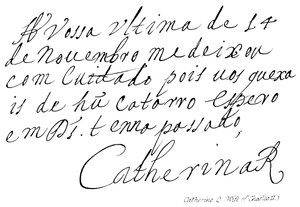 A Vossa ultima de 14
de Novembro me deixou
com Cuidado pois vos quexa
is de hũ catarro espero
em Ds. tenna passado,
CatherinaR
Catherine Q. Wife of Charles II.)